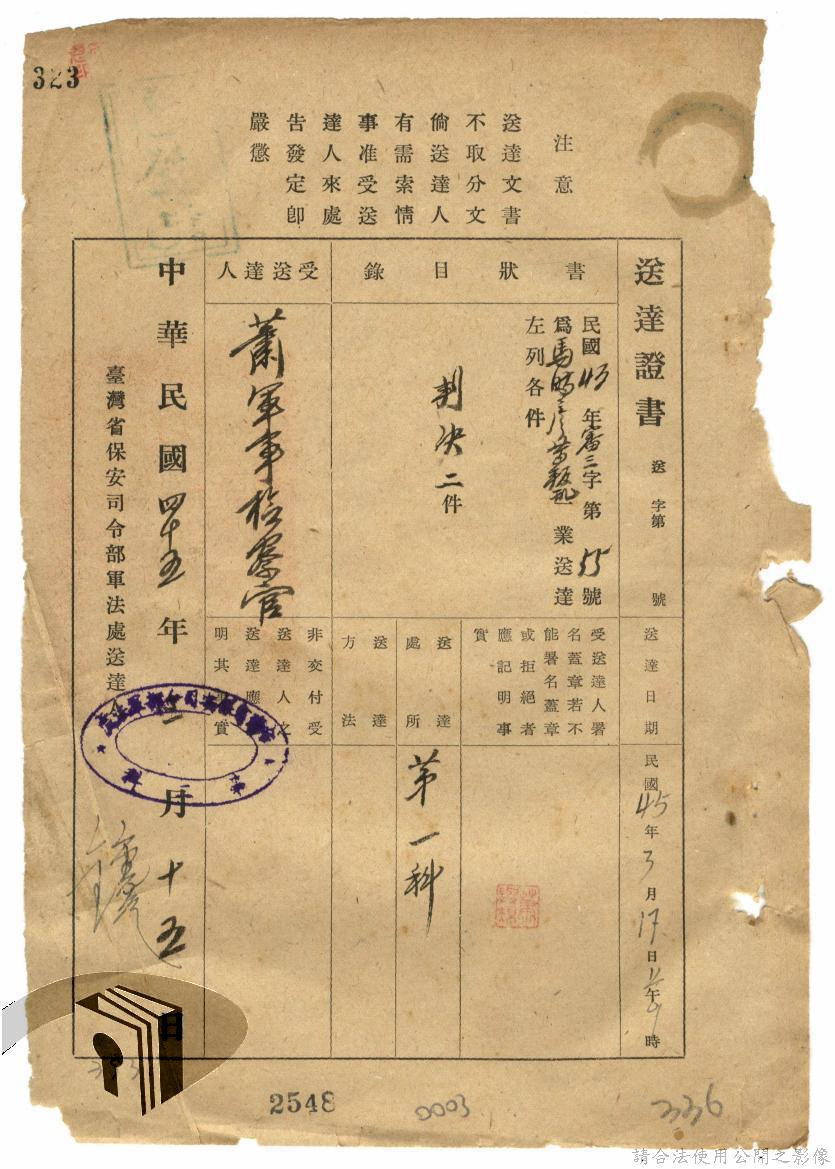 323
注意
送達文書
不取分文
倘送達人
有需索情
事准受送
達人來處
告發定卽
嚴懲
送達證書 送 字第 號
書狀目錄
民國45年審三字第55號
爲馬時彥等叛亂一業送達
左列各件
判決二件
受送達人
蕭軍事檢察官
送達日期
民國45年3月17日 午 時
受送達人署
名蓋章若不
能署名蓋章
或拒絕者
應記明事
實
送達
處所
第一科
送達
方法
非交付受
送達人之
送達應
明其 實
中華民國四十五年三月十五日
臺灣省保安司令部軍法處送達
2548
0003
336
請合法使用公開之影像